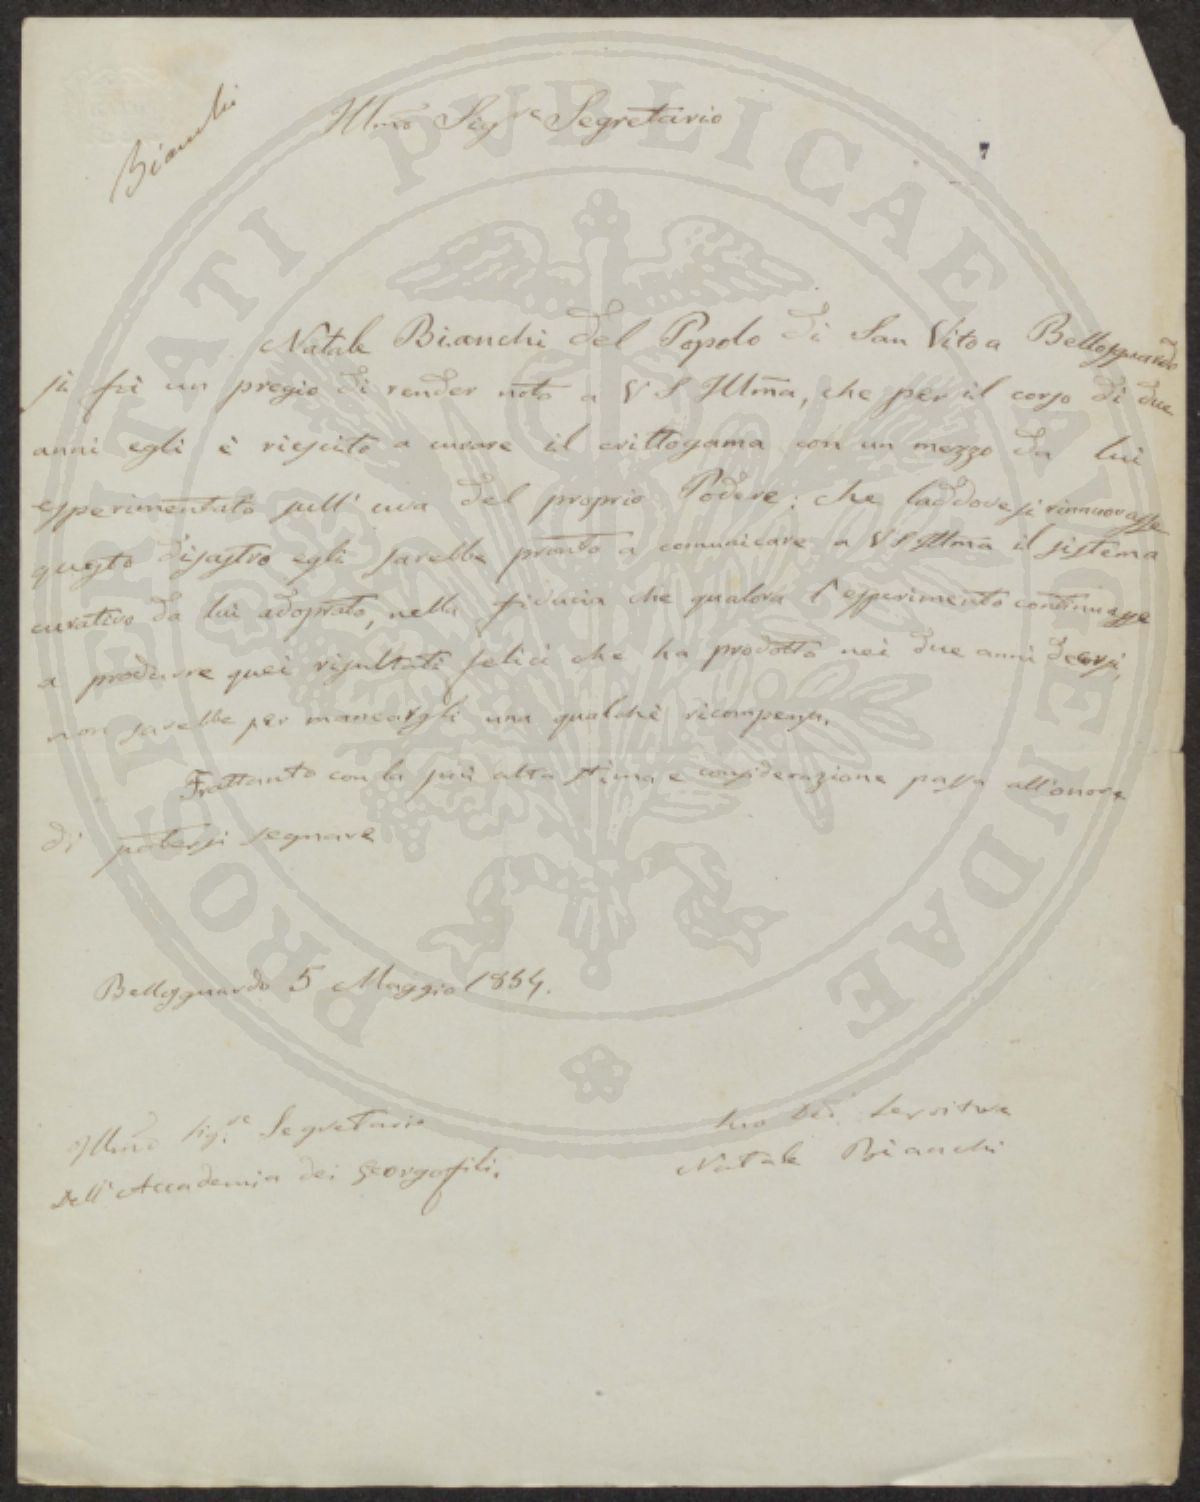 Bianchi
Illmo Sigre Segretario
7
Natale Bianchi del Popolo di San Vito a Bellosguardo
si fà un pregio di render noto a V S Illma, che per il corso di due
anni egli è riescito a curare il crittogama con un mezzo da lui
esperimentato sull' uva del proprio Podere: che laddove si rinnuovasse
questo disastro egli sarebbe pronto a comunicare a V S Illma il sistema
curativo da lui adoprato, nella fiducia che qualora l'esperimento continuasse
a produrre quei risultati felici che ha prodotto nei due anni decorsi,
non sarebbe per mancargli una qualche ricompensa.
Frattanto con la più alta stima e considerazione passa all'onore
di potersi segnare
Bellosguardo 5 Maggio 1854.
Illmo Sigre Segretario
Dell' Accademia dei Georgofili.
Suo Servitore
Natale Bianchi
PROSPERITATI PUBLICAE AUGENDAE